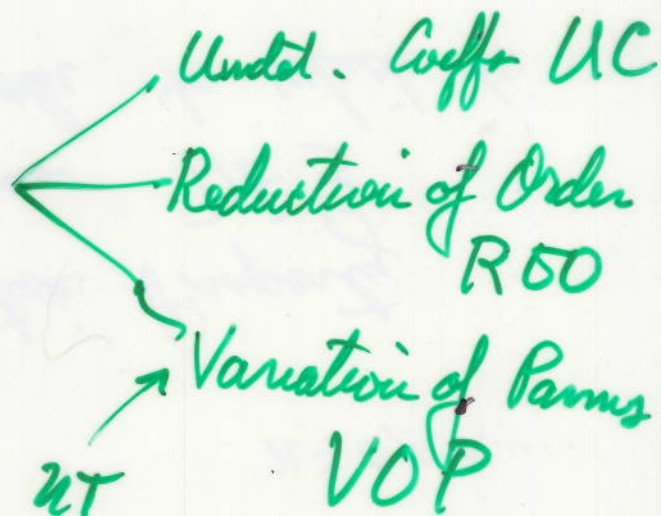 Undet. Coeffs UC
Reduction of Order
ROO
Variation of Parms
VOP